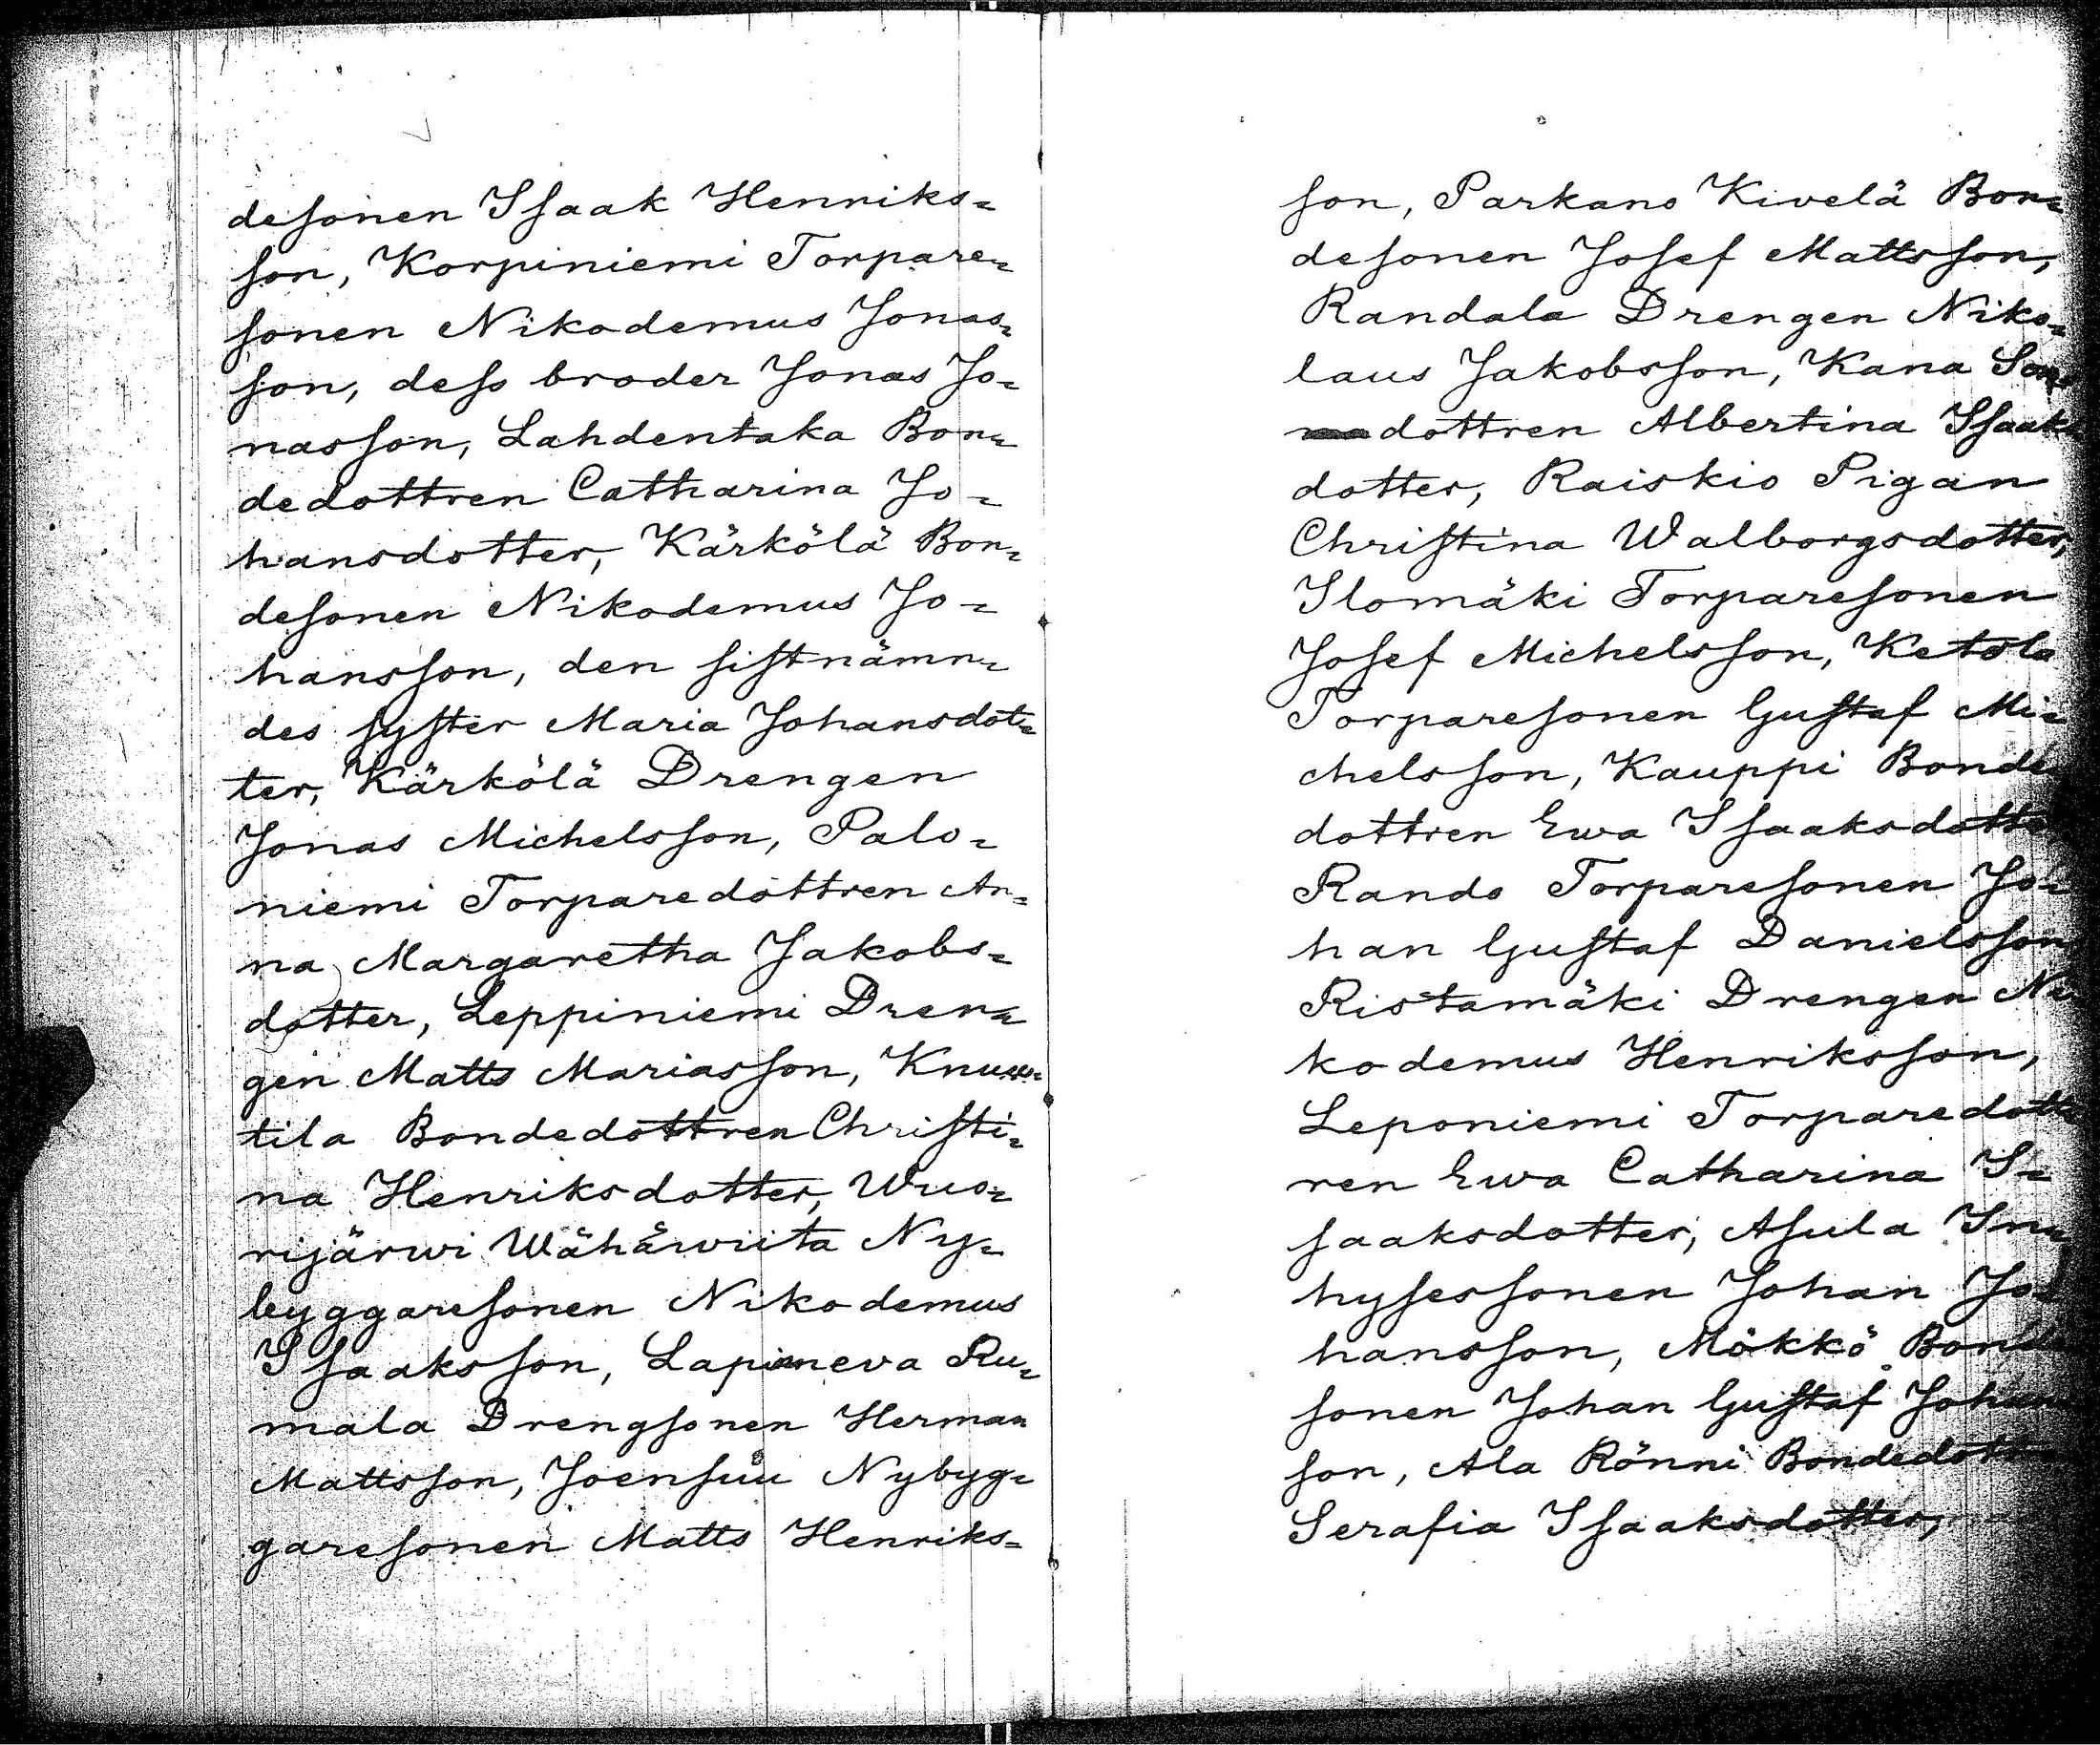 desonen Isaak Henriks=
son, Korpiniemi Torpare=
sonen Nikodemus Jonas=
son, dess broder Jonas Jo=
nasson, Lahdentaka Bon=
dedottren Catharina Jo=
hansdotter, Kärkölä Bon=
desonen Nikodemus Jo=
hansson, den sistnämn=
des syster Maria Johansdot=
ter, Kärkölä Drengen
Jonas Michelsson, Palo=
niemi Torparedottren An=
na Margaretha Jakobs=
dotter, Leppiniemi Dren=
gen Matts Mariasson, Knuu=
tila Bondedottren Christi=
na Henriksdotter, Wuo=
rijärwi Wähäwiita Ny=
byggaresonen Nikodemus
Isaaksson, Lapinneva Ru=
mala Drengsonen Herman
Mattsson, Joensuu Nybyg=
garesonen Matts Henriks=
son, Parkano Kivelä Bon=
desonen Josef Mattsson,
Randala Drengen Niko=
laus Jakobsson, Kana
dottren Albertina Isaaks
dotter, Raiskio Pigan
Christina Walborgsdotter,
Ilomäki Torparesonen
Josef Michelsson, Ketola
Torparesonen Gustaf Mi=
chelsson, Kauppi Bonde
dottren Ewa Isaaksdotte
Rando Torparesonen Jo=
han Gustaf Danielsson
Ristamäki Drengen Ni
kodemus Henriksson,
Leponiemi Torparedott
ren Ewa Catharina I=
saaksdotter, Asula In=
hysessonen Johan Jo=
hansson, Mökkö Bonde
sonen Johan Gustaf Johans
son, Ala Rönni Bondedott
Serafia Isaaksdotter,